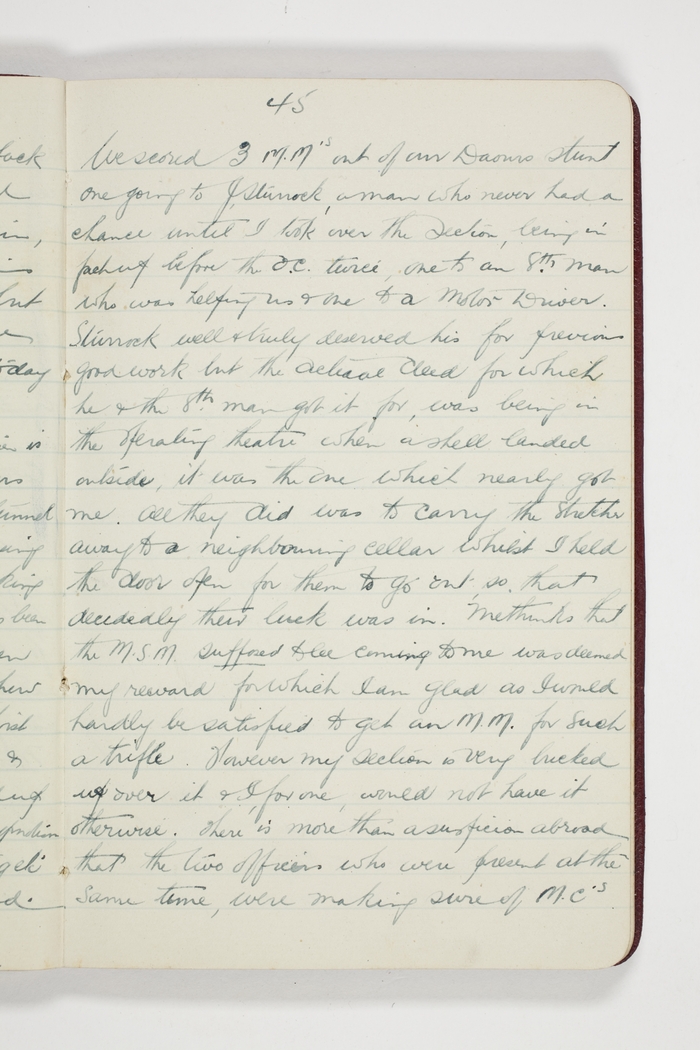 45
We scored 3 M.M's out of our Daours stunt
one going to J. Sturrock, a man who never had a
chance until I took over the Section, being in
fact up before the O.C. twice, one to an 8th man
who was helping us & one to a Motor Driver.
Sturrock well & truly deserved his for previous
good work but the actual deed for which
he & the 8th man got it for, was being in
the operating theatre when a shell landed
outside, it was the one which nearly got
me. All they did was to carry the stretcher
away to a neighbouring cellar whilst I held
the door open for them to go out, so that
decidedly their luck was in. Methinks that
the M.S.M. supposed to be coming to me was deemed
my reward for which I am glad as I would
hardly be satisfied to get an M.M. for such
a trifle. However my Section is very bucked
up over it & I, for one, would not have it
otherwise. There is more than a suspicion abroad
that the two officers who were present at the
same time, were making sure of M.C's
back
in,
but
today
is
tunnel
king
been
&